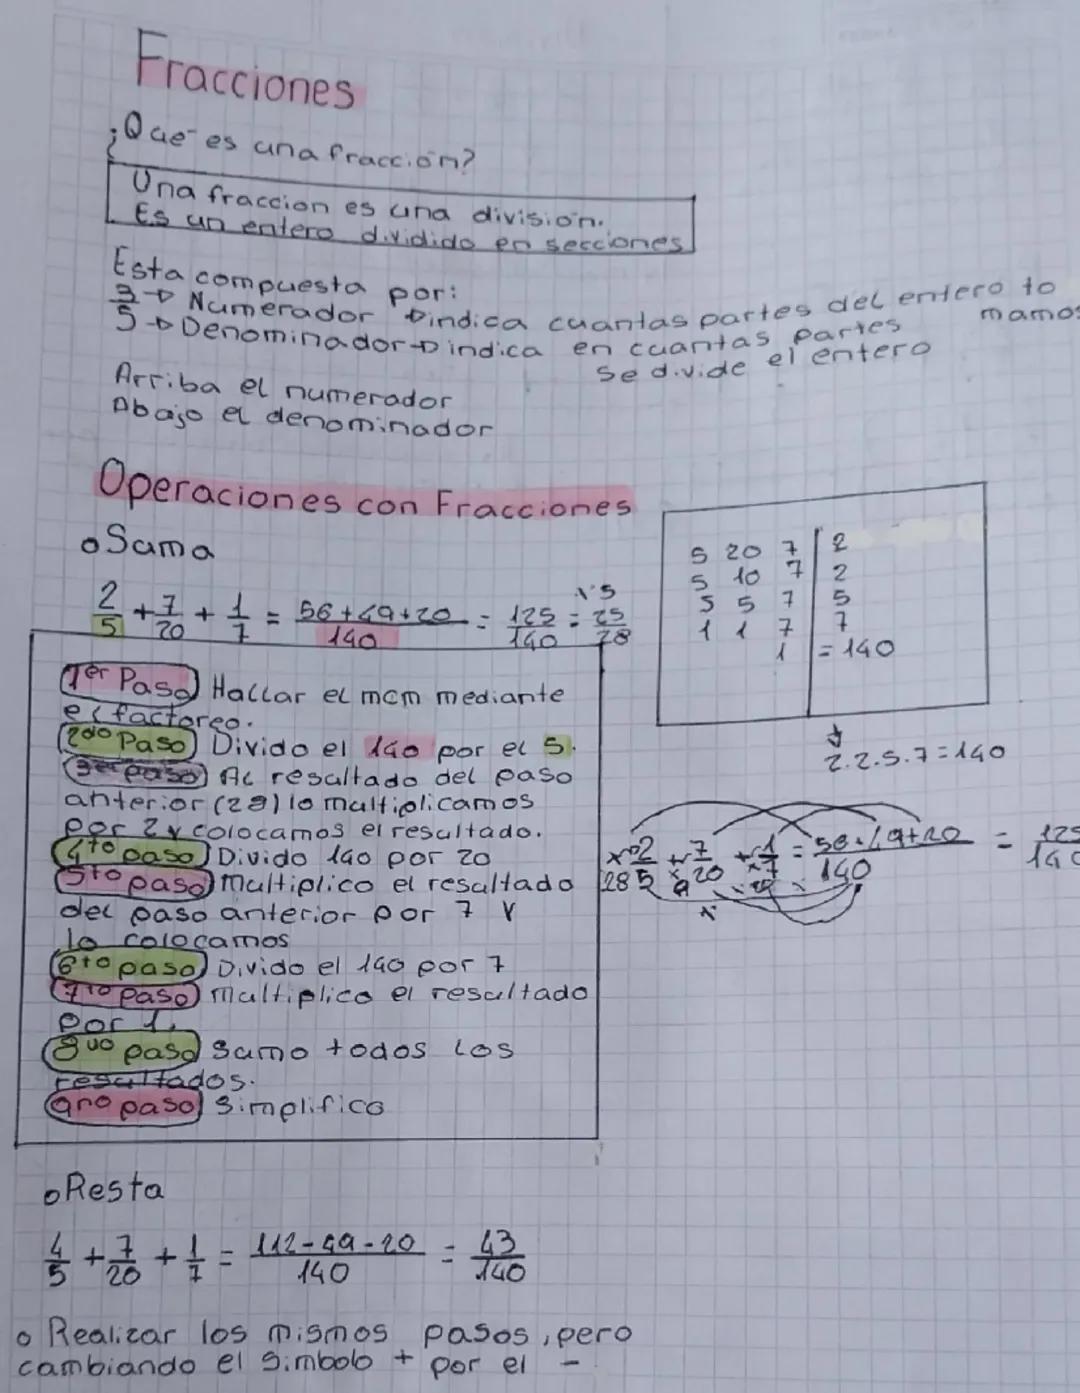 Fracciones
¿Que es una fracción?
Una fraccion es una división.
Es un entero dividido en secciones
Esta compuesta por:
3 → Numerador → indica cuantas partes del entero to
mamos
5 → Denominador → indica en cuantas partes
se divide el entero
Arriba el numerador
Abajo el denominador
Operaciones con Fracciones
o Suma
2/5 + 7/20 + 1/7 = 56+49+20/140 = 125/140 = 25/28
5 20 7 | 2
5 10 7 | 2
5 5 7 | 5
1 1 7 | 7
1 | = 140
2.2.5.7=140
1er Paso Hallar el mcm mediante
el factoreo.
2do Paso Divido el 140 por el 5.
3er paso Al resultado del paso
anterior (28) lo multiplicamos
por 2 y colocamos el resultado.
4to paso Divido 140 por 20
5to paso multiplico el resultado
del paso anterior por 7 y
lo colocamos
6to paso Divido el 140 por 7
7to paso multiplico el resultado
por 1.
8vo paso Sumo todos los
resultados.
9no paso Simplifico
2/5 + 7/20 + 1/7 = 56+49+20/140 = 125/140
28
o Resta
4/5 + 7/20 + 1/7 = 112-49-20/140 = 43/140
o Realizar los mismos pasos, pero
cambiando el simbolo + por el -